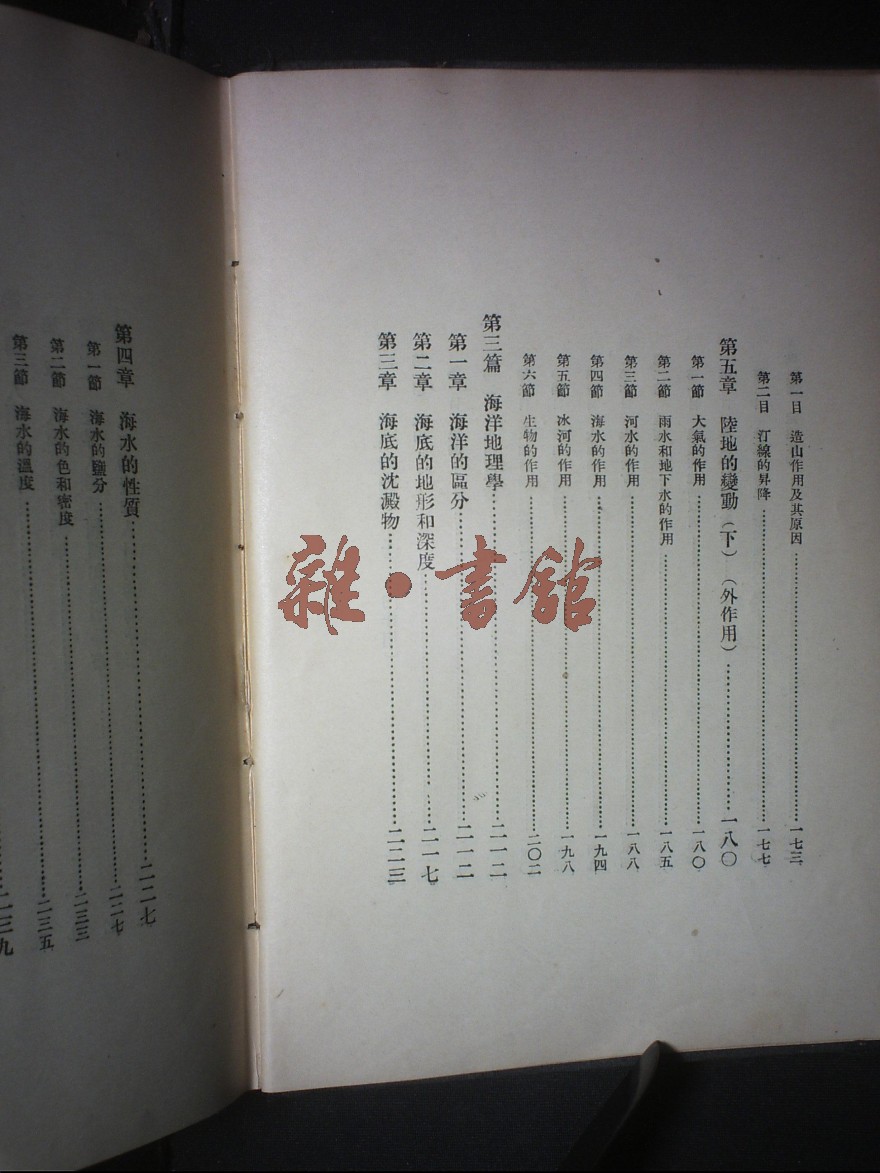 第一目　造山作用及其原因……一七三
第二目　汀線的昇降……一七七
第五章　陸地的變動（下）（外作用）……一八〇
第一節　大氣的作用……一八〇
第二節　雨水和地下水的作用……一八五
第三節　河水的作用……一八八
第四節　海水的作用……一九四
第五節　冰河的作用……一九八
第六節　生物的作用……二〇二
第三篇　海洋地理學……二一二
第一章　海洋的區分……二一二
第二章　海底的地形和深度……二一七
第三章　海底的沈澱物……二二三
第四章　海水的性質……二二七
第一節　海水的鹽分……二二七
第二節　海水的色和密度……二三三
第三節　海水的溫度……二三五
二三九
雜·書館